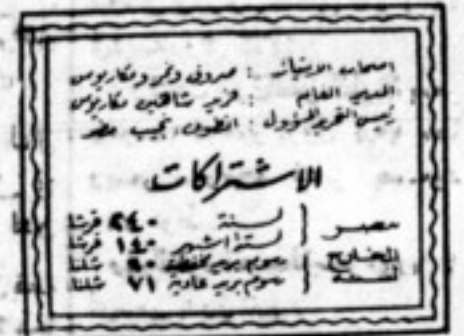 اصحاب الامتياز : صروف ونمر ومكاريوس
المدير العام : فريد شاهين مكاريوس
رئيس التحرير المسؤول : انطون نجيب مطر
الاشتراكات
مصر ( لسنة ٢٤٠ قرشا
لستة اشهر ١٤٠ قرشا
للخارج لسنة ( رسوم بريد مخفضة ٩٠ شلنا
رسوم بريد عادية ٧١ شلنا